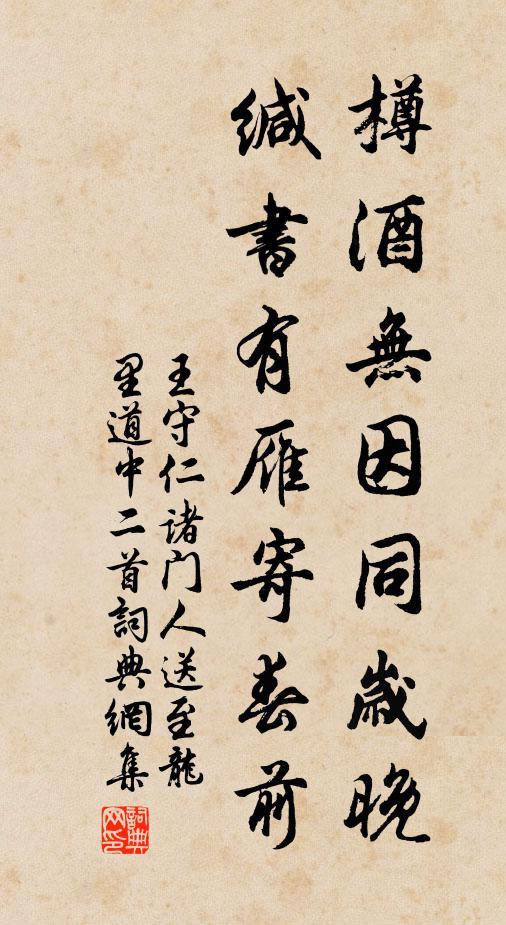 樽酒無因同歲晚
緘書有雁寄春前
王守仁诸门人送至龍
里道中二首詞典網集
詞典网印